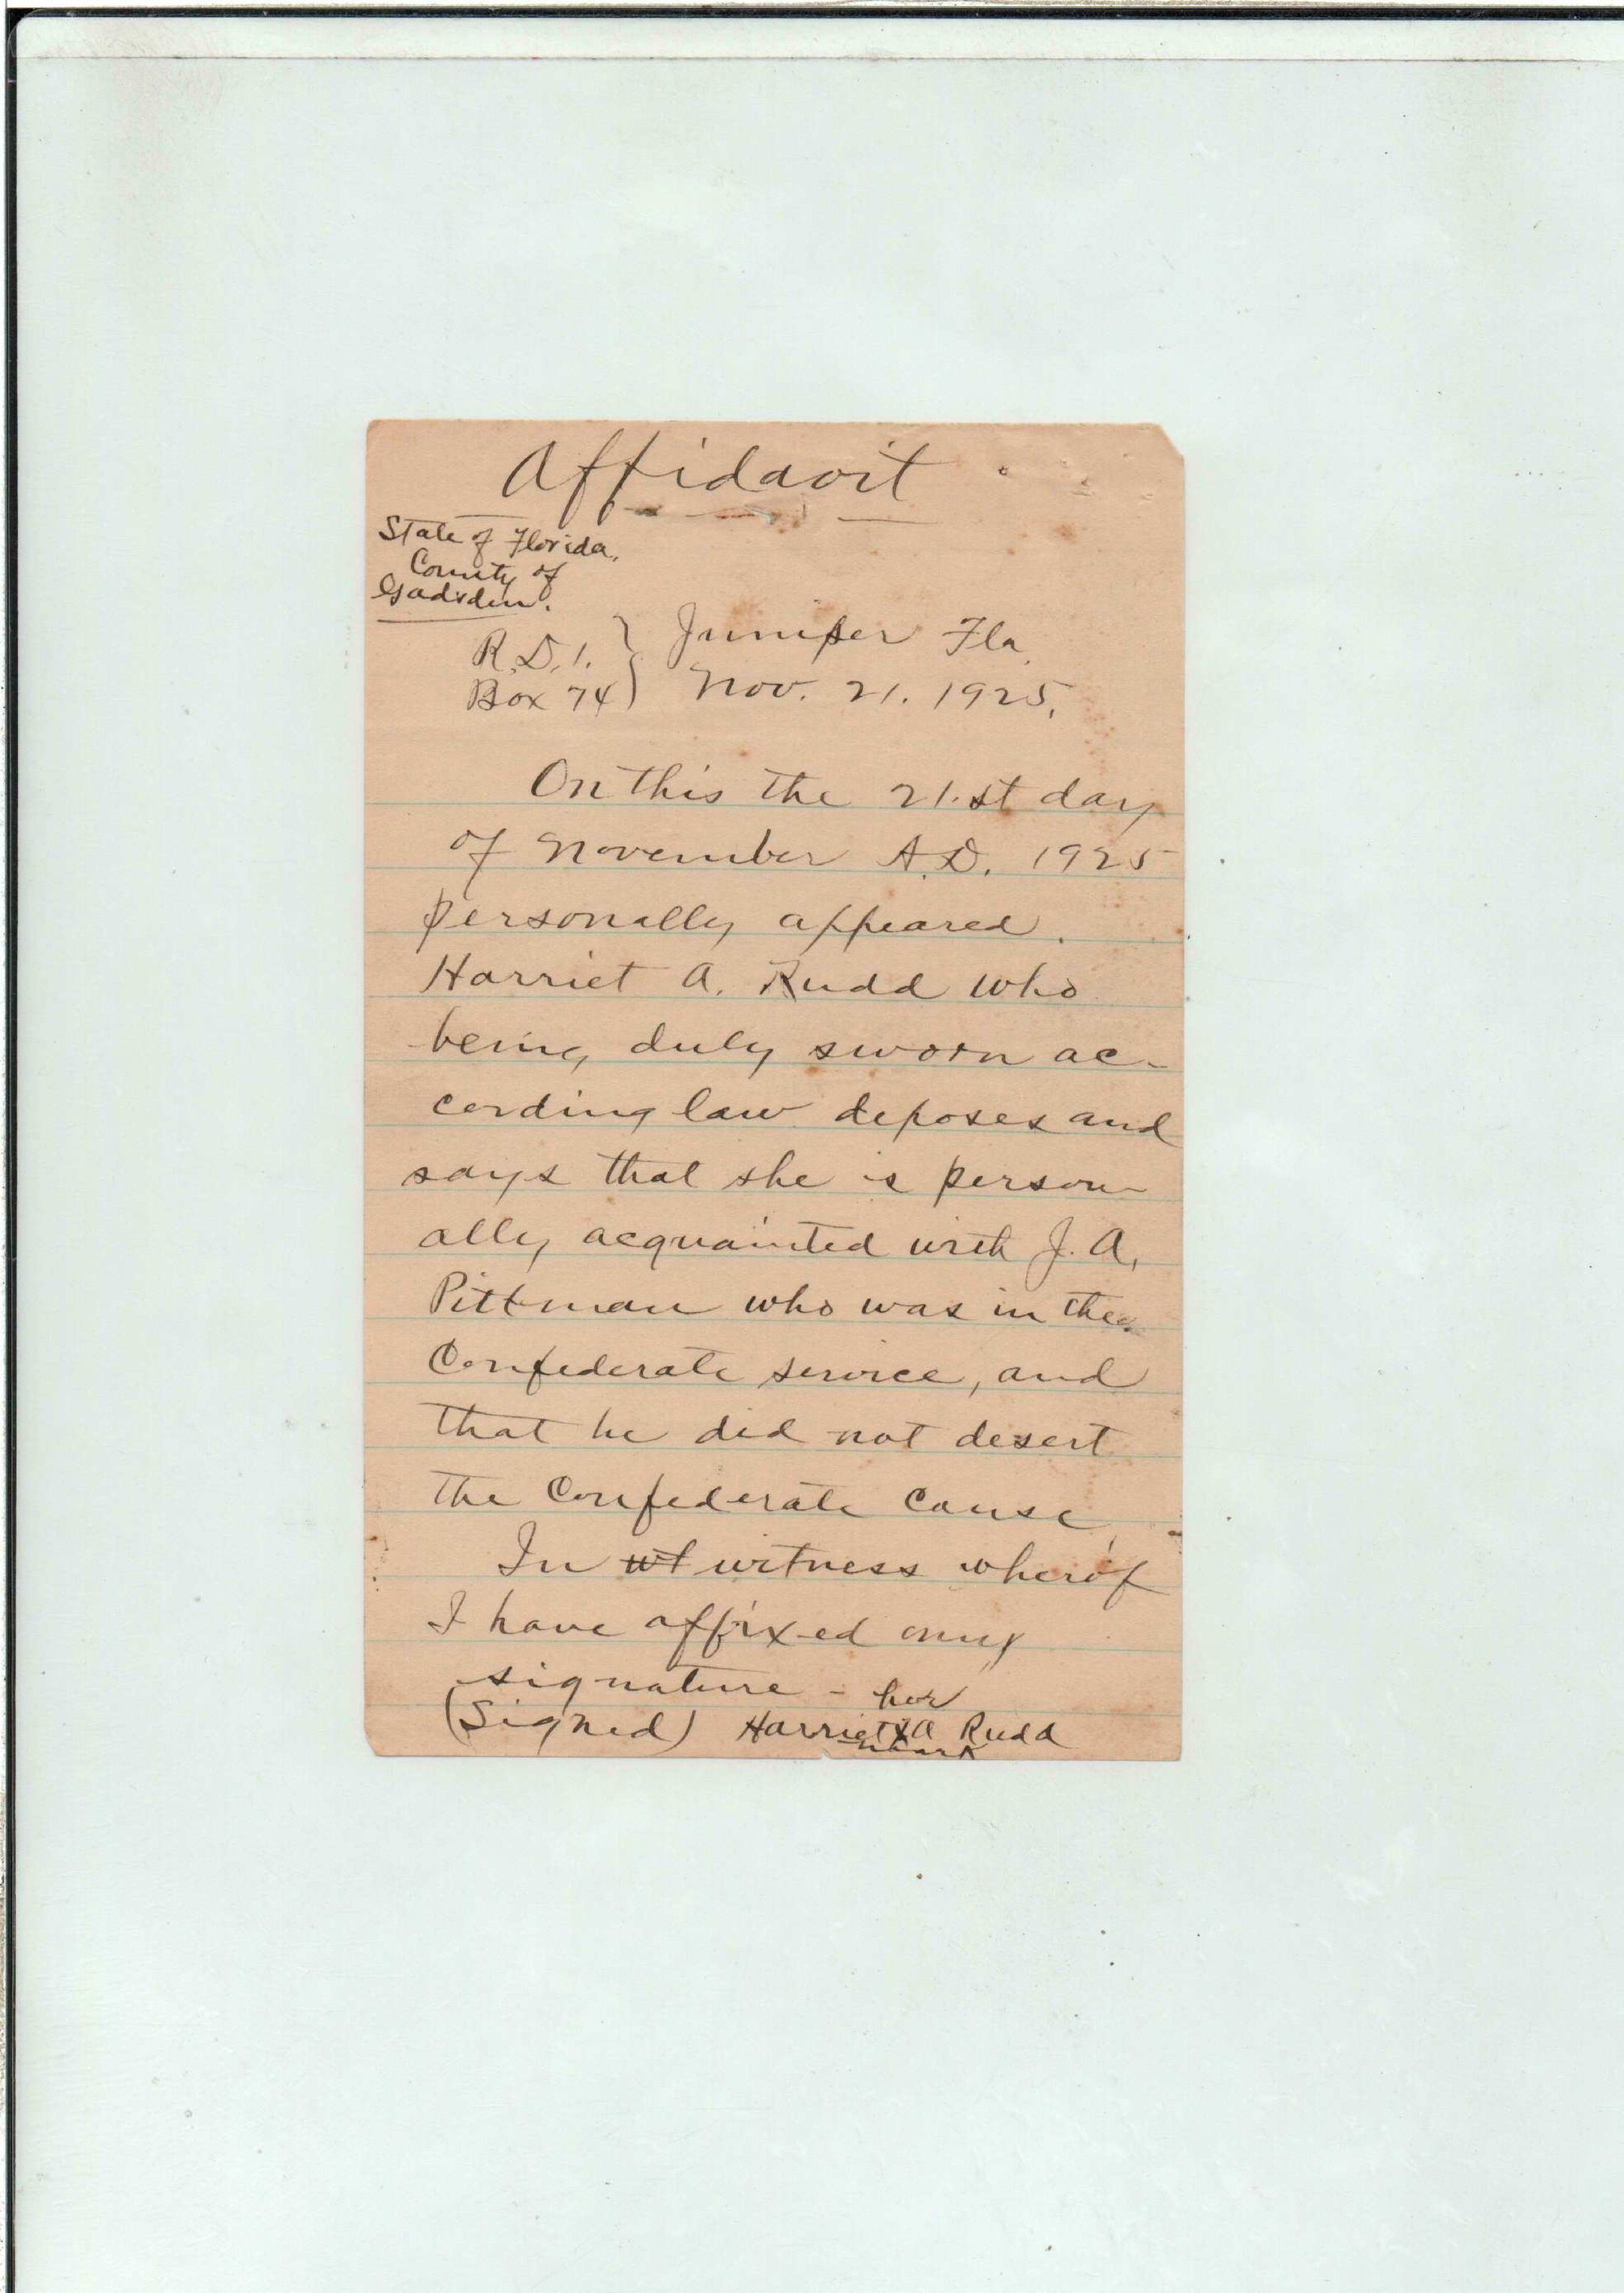 Affidavit
State of Florida.
County of
Gadsden.
R.D.1. } Juniper Fla.
Box 74 } Nov. 21. 1925.
On this the 21.st day
of November A.D. 1925
personally appeared.
Harriet A. Rudd who
being duly sworn ac-
cording law deposes and
says that she is person-
ally acquainted with J. A.
Pittman who was in the
Confederate service, and
that he did not desert
the Confederate cause
In wt witness wherof
I have affixed my
signature - her
(Signed) Harriet X A Rudd
mark